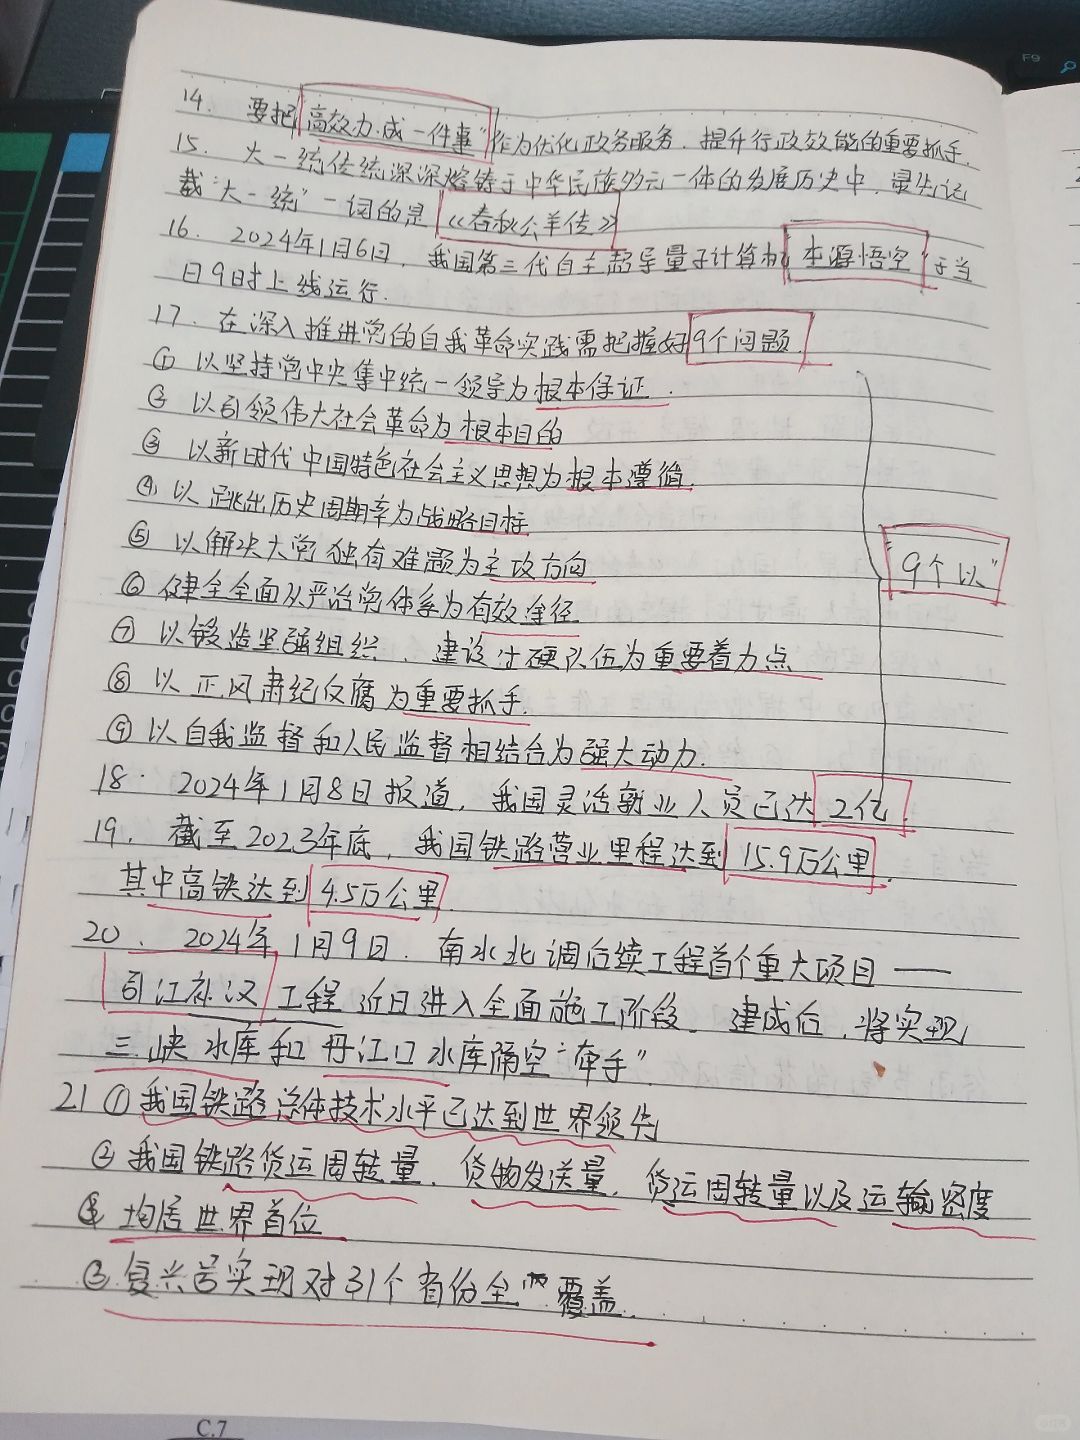 14. 要把"高效办成一件事"作为优化政务服务、提升行政效能的重要抓手.
15. 大一统传统深深熔铸于中华民族多元一体的发展历史中,最先记
载"大一统"一词的是《春秋公羊传》
16. 2024年1月6日,我国第三代自主超导量子计算机"本源悟空"于当
日9时上线运行.
17. 在深入推进党的自我革命实践需把握好9个问题.
① 以坚持党中央集中统一领导为根本保证.
② 以引领伟大社会革命为根本目的
③ 以新时代中国特色社会主义思想为根本遵循.
④ 以跳出历史周期率为战略目标
⑤ 以解决大党独有难题为主攻方向
"9个以"
⑥ 健全全面从严治党体系为有效途径
⑦ 以锻造坚强组织、建设过硬队伍为重要着力点
⑧ 以正风肃纪反腐为重要抓手.
⑨ 以自我监督和人民监督相结合为强大动力.
18. 2024年1月8日报道,我国灵活就业人员已达2亿.
19. 截至2023年底,我国铁路营业里程达到15.9万公里.
其中高铁达到4.5万公里.
20. 2024年1月9日.南水北调后续工程首个重大项目——
引江补汉工程近日进入全面施工阶段.建成后,将实现
三峡水库和丹江口水库隔空"牵手".
21 ① 我国铁路总体技术水平已达到世界领先
② 我国铁路货运周转量、货物发送量、货运周转量以及运输密度
均居世界首位
③ 复兴号实现对31个省份全覆盖.
C.7
F9